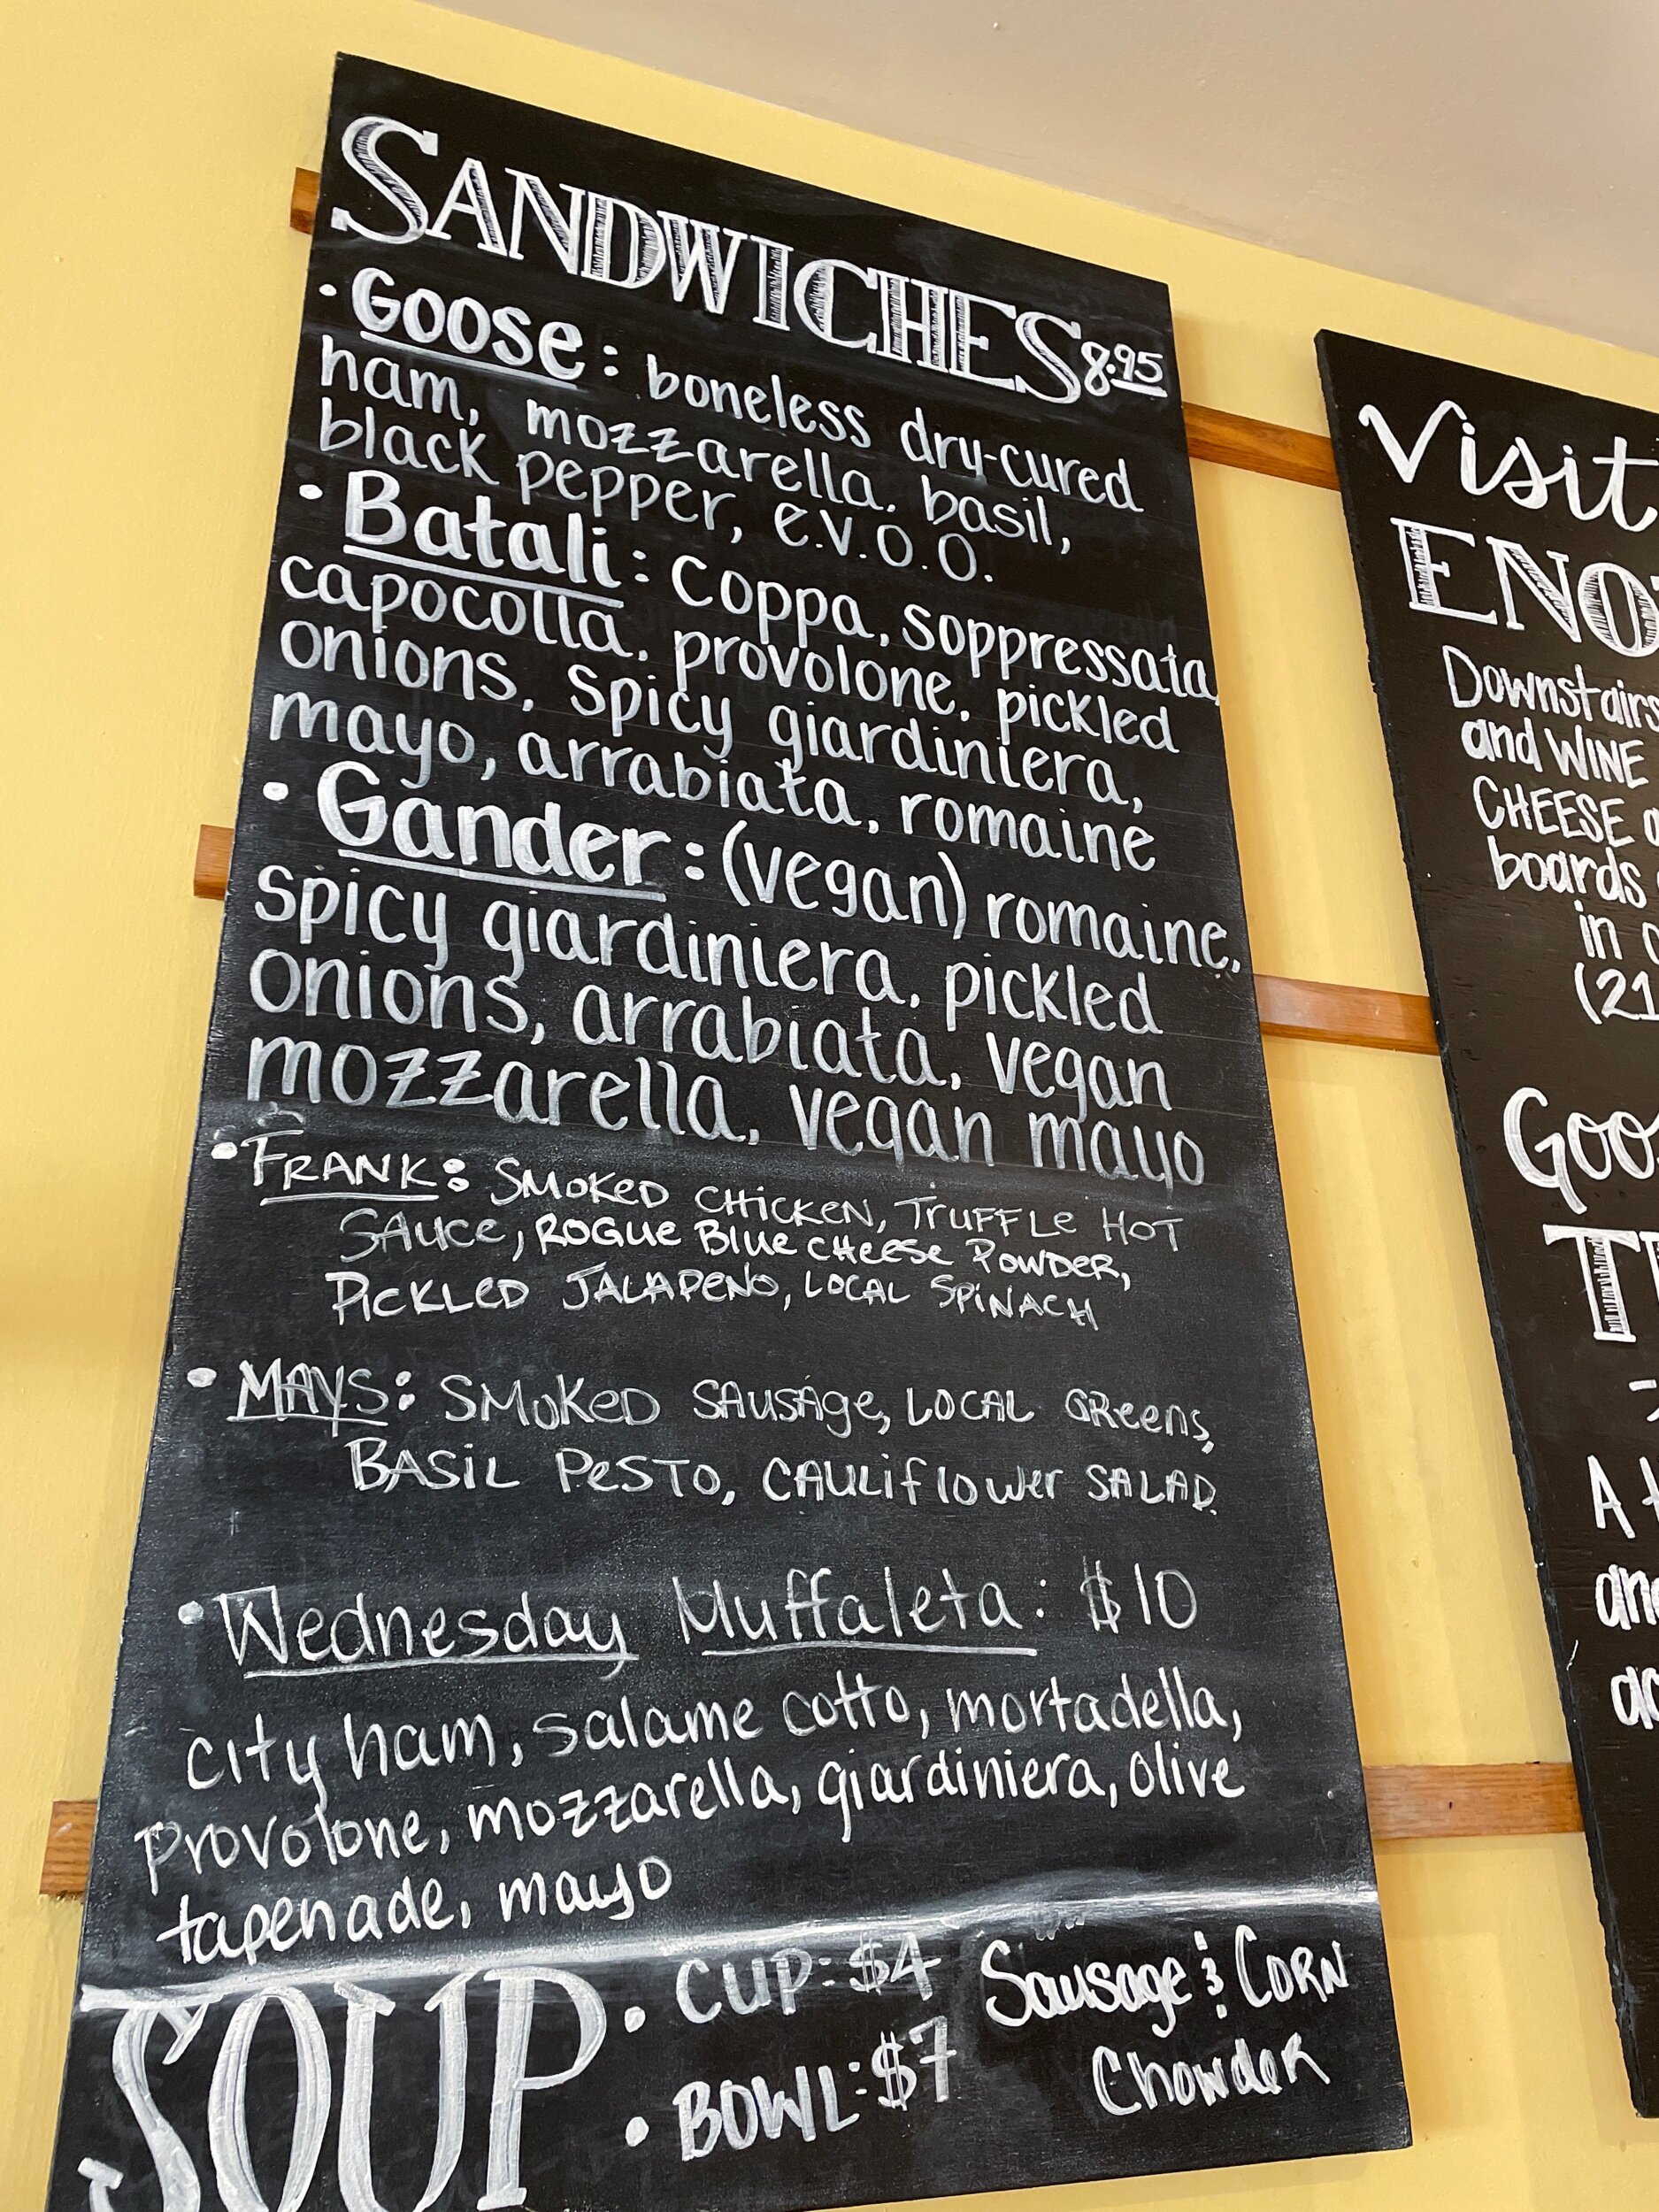 SANDWICHES 8.95
• Goose: boneless dry-cured
ham, mozzarella, basil,
black pepper, e.v.o.o.
• Batali: coppa, soppressata,
capocolla, provolone, pickled
onions, spicy giardiniera,
mayo, arrabiata, romaine
• Gander: (vegan) romaine,
spicy giardiniera, pickled
onions, arrabiata, vegan
mozzarella, vegan mayo
• FRANK: SMOKED CHICKEN, TRUFFLE HOT
SAUCE, ROGUE BLUE CHEESE POWDER,
PICKLED JALAPENO, LOCAL SPINACH
• MAYS: SMOKED SAUSAGE, LOCAL GREENS,
BASIL PESTO, CAULIFLOWER SALAD.
• Wednesday Muffaleta: $10
city ham, salame cotto, mortadella,
provolone, mozzarella, giardiniera, olive
tapenade, mayo
SOUP
• CUP: $4
• BOWL: $7
Sausage & CORN
Chowder
Visit
ENO
Downstairs
and WINE
CHEESE
boards
in
(21
Goo
T
A